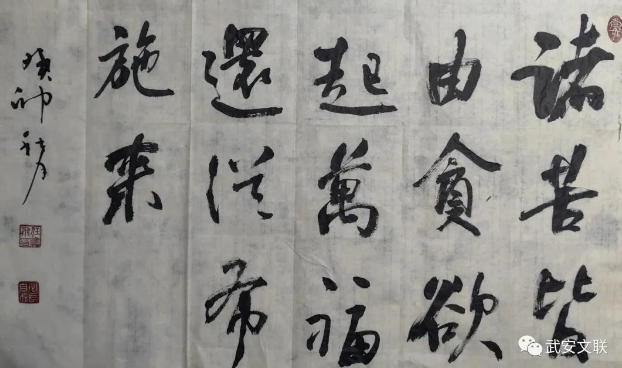 諸苦皆
由貪欲
起萬福
還從布
施來
癸卯
武安文联